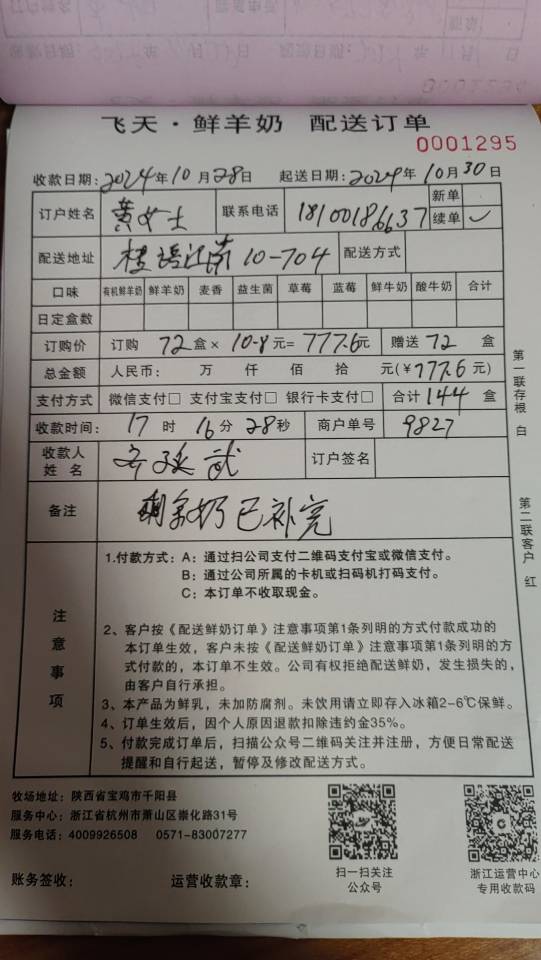 飞天·鲜羊奶 配送订单
0001295
收款日期:2024年10月28日 起送日期:2024年10月30日
订户姓名 黄女士 联系电话 18100186637 新单 续单 ✓
配送地址 桂语江南10-704 配送方式
口味 有机鲜羊奶 鲜羊奶 麦香 益生菌 草莓 蓝莓 鲜牛奶 酸牛奶 合计
日定盒数
订购价 订购 72盒× 10.8元= 777.6元 赠送 72 盒
总金额 人民币: 万 仟 佰 拾 元(¥777.6元)
支付方式 微信支付□ 支付宝支付□ 银行卡支付□ 合计144盒
收款时间: 17 时 16分 28秒 商户单号 9827
收款人姓名 武 订户签名
备注 剩余奶已补完
第一联存根 白
第二联客户 红
注意事项
1.付款方式: A: 通过扫公司支付二维码支付宝或微信支付。
B: 通过公司所属的卡机或扫码机打码支付。
C: 本订单不收取现金。
2、客户按《配送鲜奶订单》注意事项第1条列明的方式付款成功的
本订单生效,客户未按《配送鲜奶订单》注意事项第1条列明的方
式付款的,本订单不生效。公司有权拒绝配送鲜奶,发生损失的,
由客户自行承担。
3、本产品为鲜乳,未加防腐剂。未饮用请立即存入冰箱2-6℃保鲜。
4、订单生效后,因个人原因退款扣除违约金35%。
5、付款完成订单后,扫描公众号二维码关注并注册,方便日常配送
提醒和自行起送,暂停及修改配送方式。
牧场地址: 陕西省宝鸡市千阳县
服务中心: 浙江省杭州市萧山区崇化路31号
服务电话: 4009926508 0571-83007277
扫一扫关注
公众号
浙江运营中心
专用收款码
账务签收: 运营收款章: